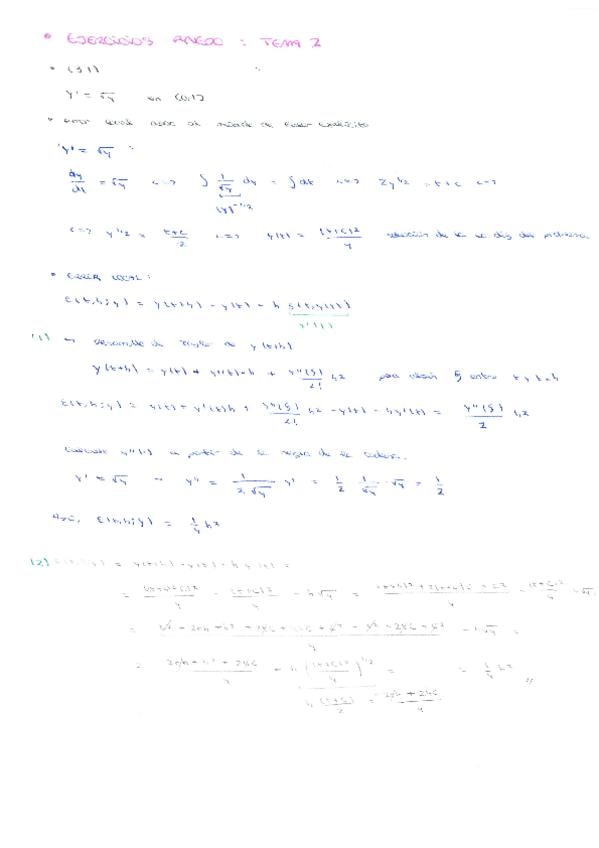 • EJERCICIOS ANEXO : TEMA 2
• (31)
y' = √y en [0,1]
• Error local del método de Euler explícito
y' = √y :
dy/dt = √y <=> ∫ 1/√y dy = ∫ dt <=> 2y^1/2 = t+c <=>
(y)^-1/2
<=> y^1/2 = (t+c)/2 <=> y(t) = (t+c)²/4 solución de la ec. del problema
• ERROR LOCAL :
ε(t,h;y) = y(t+h) - y(t) - h f(t,y(t))
y'(t)
(1) → desarrollo de Taylor de y(t+h)
y(t+h) = y(t) + y'(t)·h + y''(ξ)/2! h² para algún ξ entre t y t+h
ε(t,h;y) = y(t) + y'(t)h + y''(ξ)/2! h² - y(t) - hy'(t) = y''(ξ)/2 h²
y''(·) a partir de la regla de la cadena.
y' = √y → y'' = 1/(2√y) y' = 1/2 · 1/√y · √y = 1/2
Así, ε(t,h;y) = 1/4 h²
(2) ε(t,h;y) = y(t+h) - y(t) - h y'(t) =
= (t+h+c)²/4 - (t+c)²/4 - h√y =
= - h√y =
= (2th + h² + 2hc)/4 - h ((t+c)²/4)^1/2 = = 1/4 h² //
h (t+c)/2 = (2th + 2hc)/4